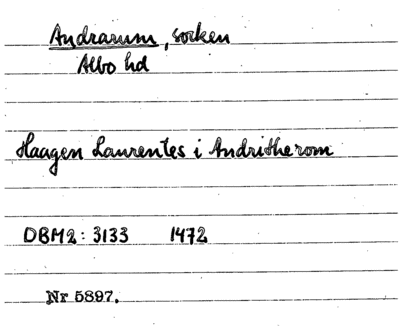 Andrarum, socken
Albo hd
Haagen Laurentes i Andritherom
DBM2: 3133 1472
Nr 5897.